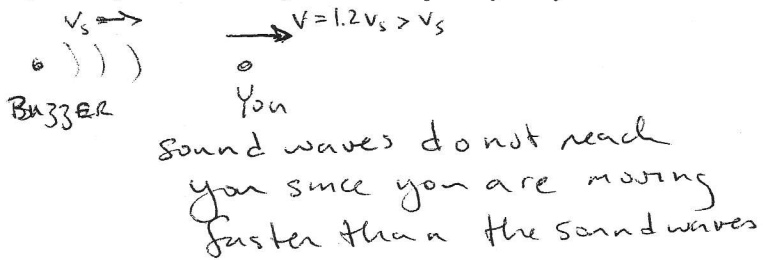 Vs → V = 1.2 Vs > Vs
Buzzer You
sound waves do not reach
you since you are moving
faster than the sound waves